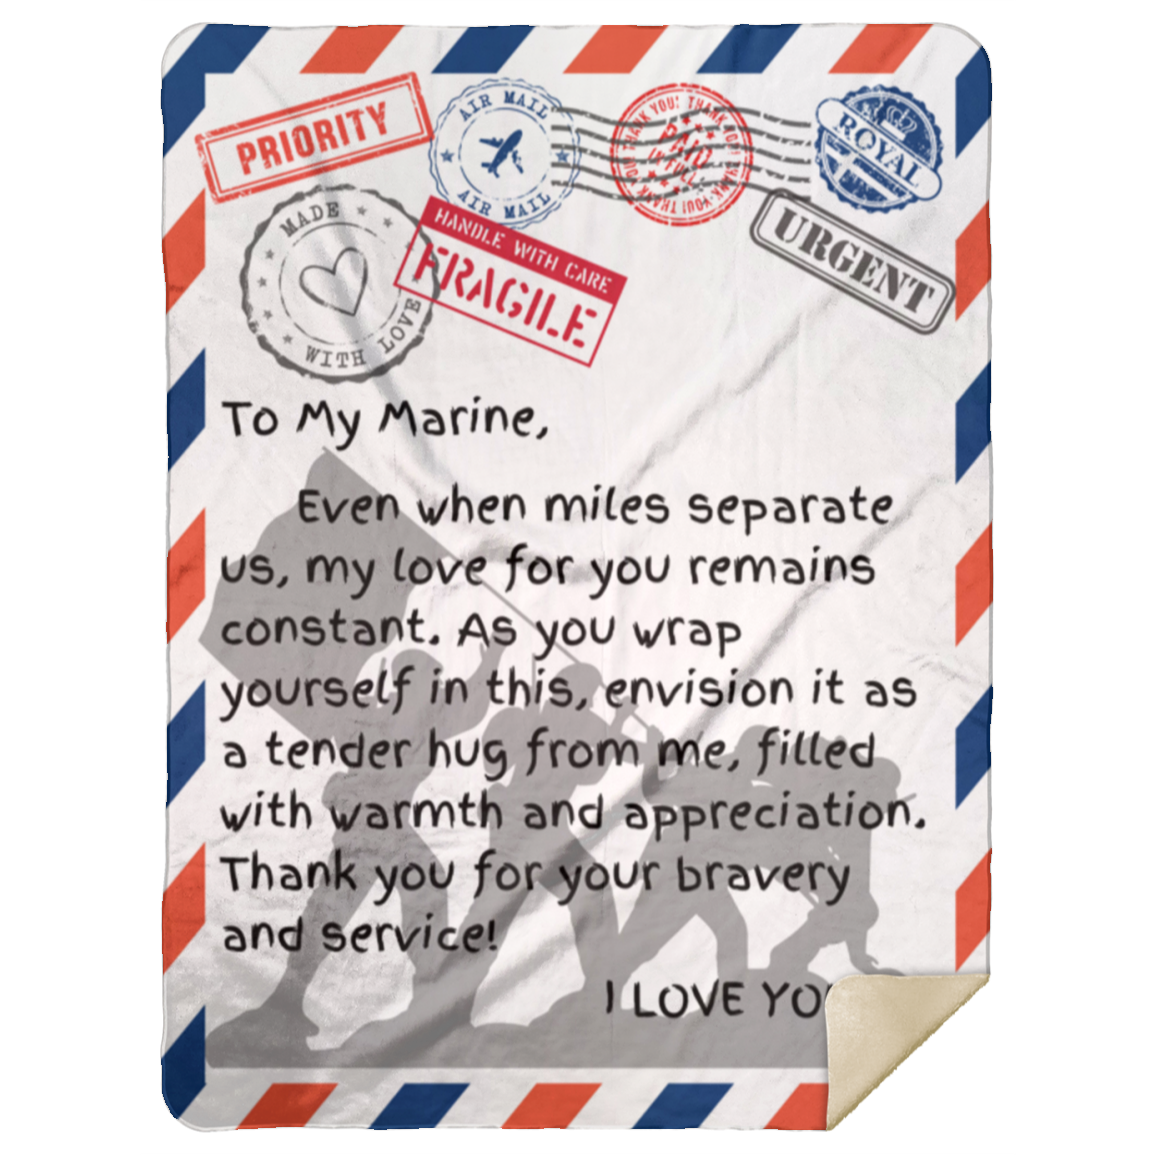 PRIORITY
AIR MAIL
AIR MAIL
THANK YOU! THANK YOU! THANK YOU! THANK YOU!
PAID
IN FULL
ROYAL
MADE
WITH LOVE
HANDLE WITH CARE
FRAGILE
URGENT
To My Marine,
Even when miles separate
us, my love for you remains
constant. As you wrap
yourself in this, envision it as
a tender hug from me, filled
with warmth and appreciation.
Thank you for your bravery
and service!
I LOVE YO